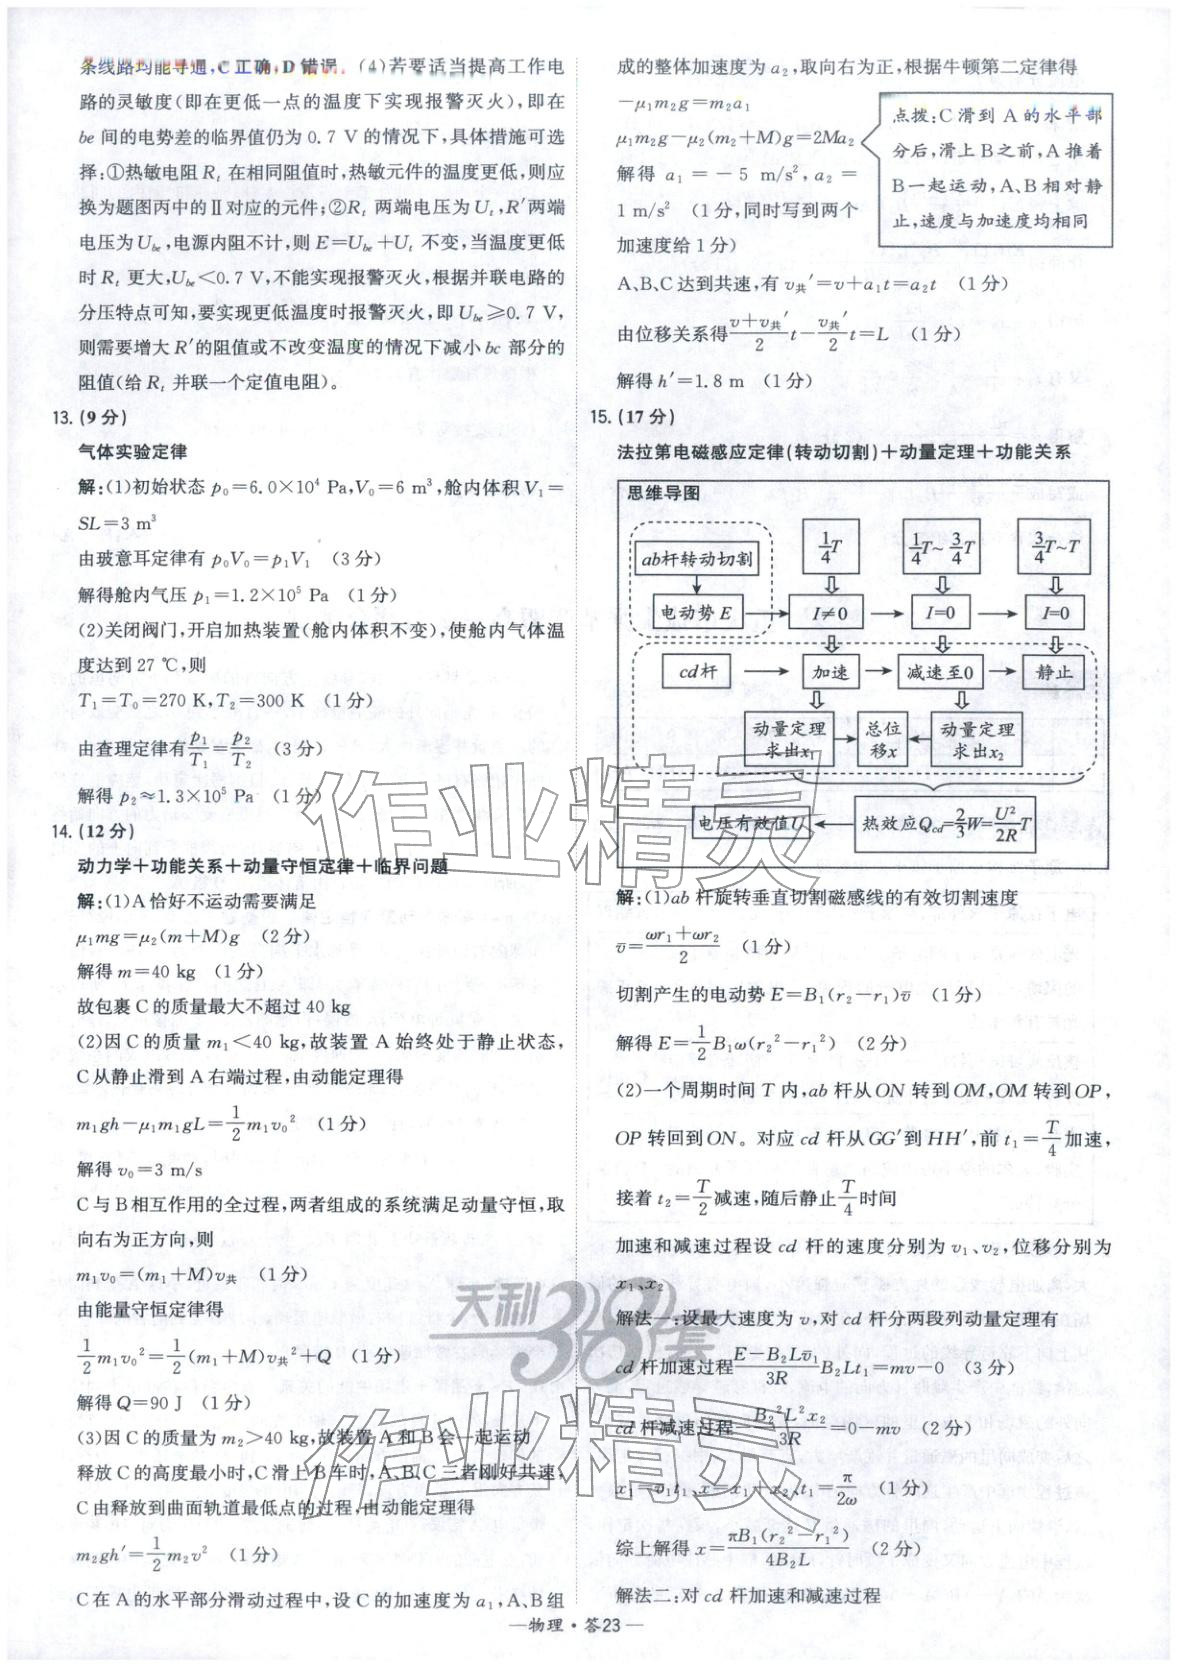 条线路均能导通,C正确,D错误。(4)若要适当提高工作电
路的灵敏度(即在更低一点的温度下实现报警灭火),即在
be 间的电势差的临界值仍为 0.7 V 的情况下,具体措施可选
择:①热敏电阻 Rₜ 在相同阻值时,热敏元件的温度更低,则应
换为题图丙中的Ⅱ对应的元件;②Rₜ 两端电压为 Uₜ,R′两端
电压为 U_be,电源内阻不计,则 E=U_be+Uₜ 不变,当温度更低
时 Rₜ 更大,U_be<0.7 V,不能实现报警灭火,根据并联电路的
分压特点可知,要实现更低温度时报警灭火,即 U_be≥0.7 V,
则需要增大 R′的阻值或不改变温度的情况下减小 bc 部分的
阻值(给 Rₜ 并联一个定值电阻)。
13. (9 分)
气体实验定律
解:(1)初始状态 p₀=6.0×10⁴ Pa,V₀=6 m³,舱内体积 V₁=
SL=3 m³
由玻意耳定律有 p₀V₀=p₁V₁ (3 分)
解得舱内气压 p₁=1.2×10⁵ Pa (1 分)
(2)关闭阀门,开启加热装置(舱内体积不变),使舱内气体温
度达到 27 ℃,则
T₁=T₀=270 K,T₂=300 K (1 分)
由查理定律有p₁/T₁=p₂/T₂ (3 分)
解得 p₂≈1.3×10⁵ Pa (1 分)
14. (12 分)
动力学+功能关系+动量守恒定律+临界问题
解:(1)A 恰好不运动需要满足
μ₁mg=μ₂(m+M)g (2 分)
解得 m=40 kg (1 分)
故包裹 C 的质量最大不超过 40 kg
(2)因 C 的质量 m₁<40 kg,故装置 A 始终处于静止状态,
C 从静止滑到 A 右端过程,由动能定理得
m₁gh-μ₁m₁gL=1/2 m₁v₀² (1 分)
解得 v₀=3 m/s
C 与 B 相互作用的全过程,两者组成的系统满足动量守恒,取
向右为正方向,则
m₁v₀=(m₁+M)v共 (1 分)
由能量守恒定律得
1/2 m₁v₀²=1/2 (m₁+M)v共²+Q (1 分)
解得 Q=90 J (1 分)
(3)因 C 的质量为 m₂>40 kg,故装置 A 和 B 会一起运动
释放 C 的高度最小时,C 滑上 B 车时,A、B、C 三者刚好共速,
C 由释放到曲面轨道最低点的过程,由动能定理得
m₂gh′=1/2 m₂v² (1 分)
C 在 A 的水平部分滑动过程中,设 C 的加速度为 a₁,A、B 组
成的整体加速度为 a₂,取向右为正,根据牛顿第二定律得
-μ₁m₂g=m₂a₁
μ₁m₂g-μ₂(m₂+M)g=2Ma₂
解得 a₁=-5 m/s²,a₂=
1 m/s² (1 分,同时写到两个
加速度给 1 分)
点拨:C 滑到 A 的水平部
分后,滑上 B 之前,A 推着
B 一起运动,A、B 相对静
止,速度与加速度均相同
A、B、C 达到共速,有 v共′=v+a₁t=a₂t (1 分)
由位移关系得(v+v共′)/2 t-v共′/2 t=L (1 分)
解得 h′=1.8 m (1 分)
15. (17 分)
法拉第电磁感应定律(转动切割)+动量定理+功能关系
思维导图
ab杆转动切割 1/4T 1/4T~3/4T 3/4T~T
电动势 E I≠0 I=0 I=0
cd杆 加速 减速至0 静止
动量定理 总位 动量定理
求出x₁ 移x 求出x₂
电压有效值U 热效应Q_cd=2/3W=U²/2R T
解:(1)ab 杆旋转垂直切割磁感线的有效切割速度
v̄=(ωr₁+ωr₂)/2 (1 分)
切割产生的电动势 E=B₁(r₂-r₁)v̄ (1 分)
解得 E=1/2 B₁ω(r₂²-r₁²) (2 分)
(2)一个周期时间 T 内,ab 杆从 ON 转到 OM,OM 转到 OP,
OP 转回到 ON。对应 cd 杆从 GG′到 HH′,前 t₁=T/4加速,
接着 t₂=T/2减速,随后静止T/4时间
加速和减速过程设 cd 杆的速度分别为 v₁、v₂,位移分别为
x₁、x₂
解法一:设最大速度为 v,对 cd 杆分两段列动量定理有
cd 杆加速过程(E-B₂Lv̄₁)/3R B₂Lt₁=mv-0 (3 分)
cd 杆减速过程-B₂²L²x₂/3R=0-mv (2 分)
x₁=v̄₁t₁、x=x₁+x₂、t₁=π/2ω (1 分)
综上解得 x=πB₁(r₂²-r₁²)/4B₂L (2 分)
解法二:对 cd 杆加速和减速过程
—物理·答23—
作业精灵
天利38套
作业精灵